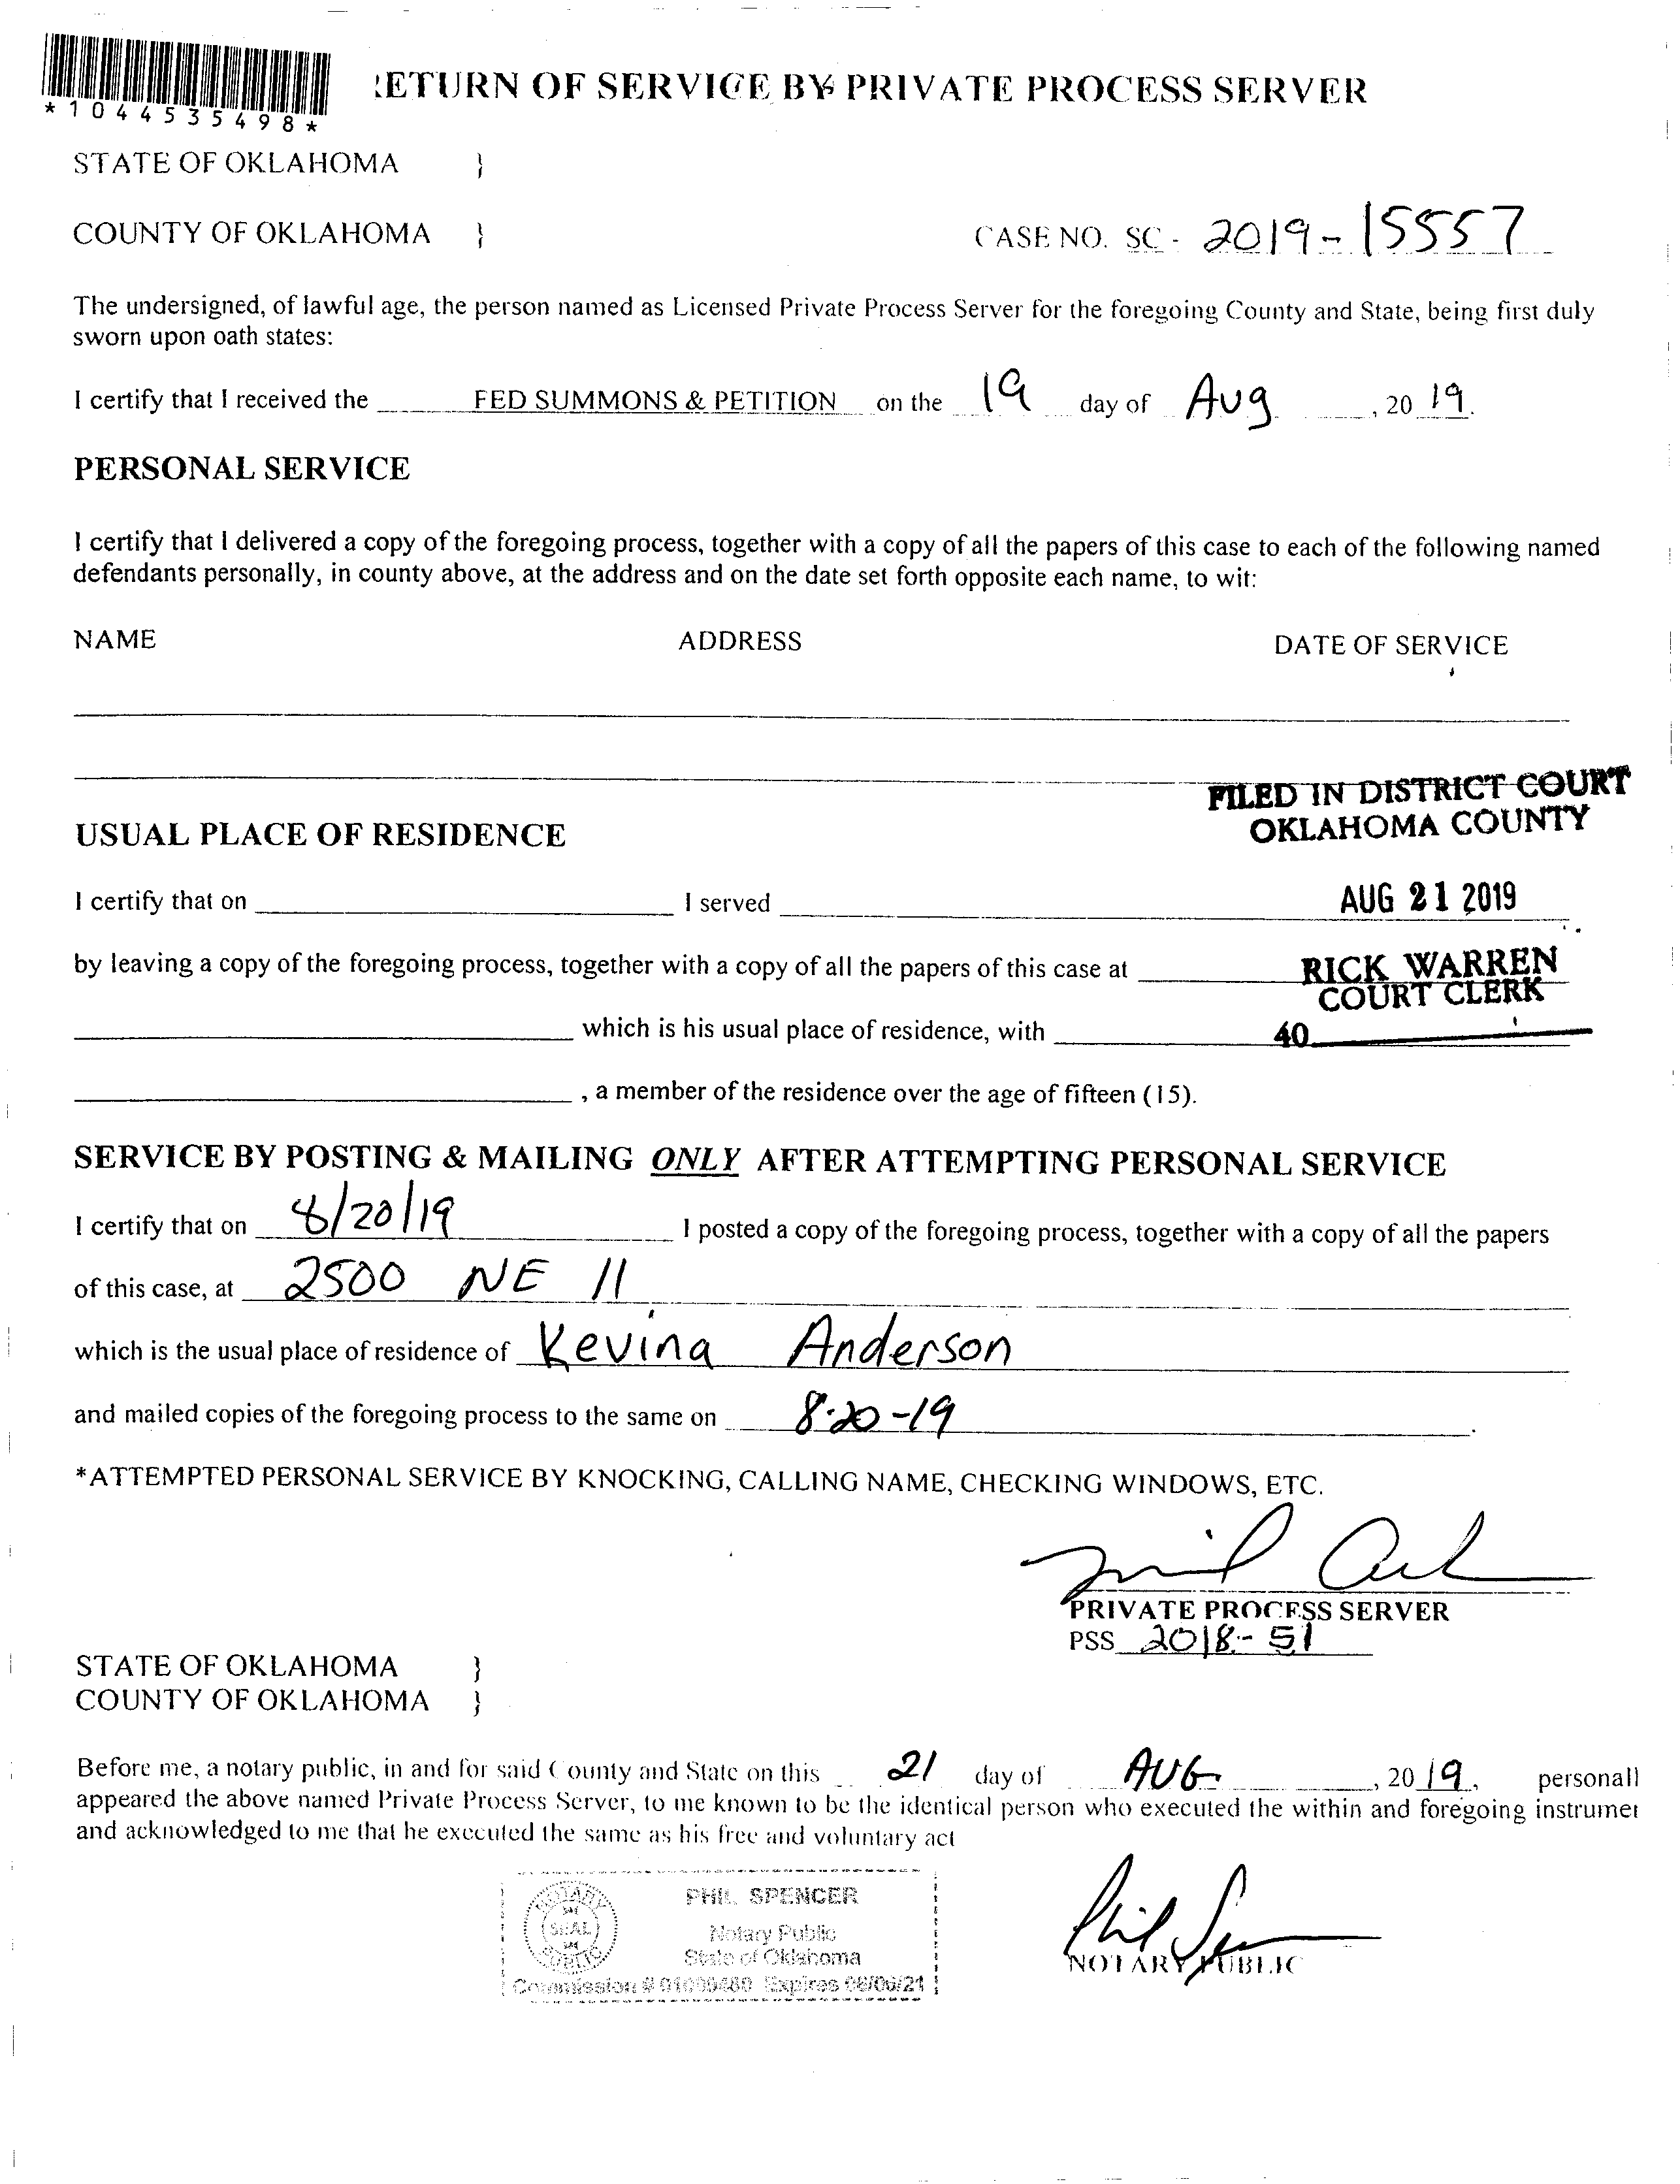 *1044535498*
RETURN OF SERVICE BY PRIVATE PROCESS SERVER
STATE OF OKLAHOMA }
COUNTY OF OKLAHOMA } CASE NO. SC - 2019-15557
The undersigned, of lawful age, the person named as Licensed Private Process Server for the foregoing County and State, being first duly
sworn upon oath states:
I certify that I received the FED SUMMONS & PETITION on the 19 day of Aug, 2019.
PERSONAL SERVICE
I certify that I delivered a copy of the foregoing process, together with a copy of all the papers of this case to each of the following named
defendants personally, in county above, at the address and on the date set forth opposite each name, to wit:
NAME ADDRESS DATE OF SERVICE
FILED IN DISTRICT COURT
OKLAHOMA COUNTY
USUAL PLACE OF RESIDENCE
I certify that on ____ I served ____ AUG 21 2019
by leaving a copy of the foregoing process, together with a copy of all the papers of this case at ____ RICK WARREN
COURT CLERK
____ which is his usual place of residence, with ____ 40____
____, a member of the residence over the age of fifteen (15).
SERVICE BY POSTING & MAILING ONLY AFTER ATTEMPTING PERSONAL SERVICE
I certify that on 8/20/19 I posted a copy of the foregoing process, together with a copy of all the papers
of this case, at 2500 NE 11
which is the usual place of residence of Kevina Anderson
and mailed copies of the foregoing process to the same on 8-20-19.
*ATTEMPTED PERSONAL SERVICE BY KNOCKING, CALLING NAME, CHECKING WINDOWS, ETC.
PRIVATE PROCESS SERVER
PSS 2018-51
STATE OF OKLAHOMA }
COUNTY OF OKLAHOMA }
Before me, a notary public, in and for said County and State on this 21 day of AUG, 2019, personall
appeared the above named Private Process Server, to me known to be the identical person who executed the within and foregoing instrumer
and acknowledged to me that he executed the same as his free and voluntary act
NOTARY
SEAL
PUBLIC
PHIL SPENCER
Notary Public
State of Oklahoma
Commission # 01009480 Expires 06/06/21
Phil Spencer
NOTARY PUBLIC